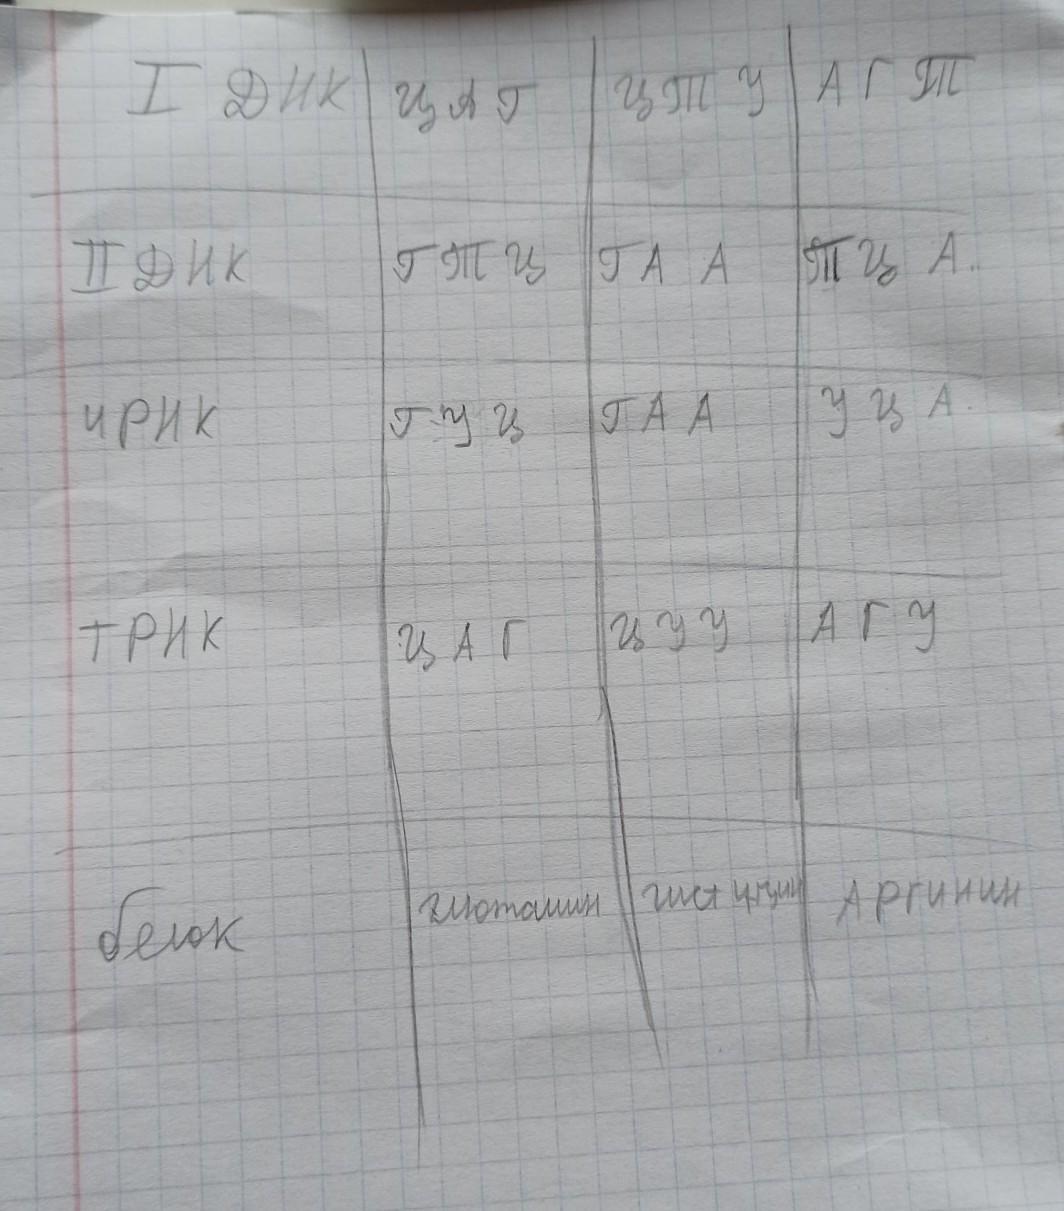 I ДНК ЦАГ ЦТУ АГТ
II ДНК ГТЦ ГАА ТЦА..
иРНК ГУЦ ГАА УЦА.
тРНК ЦАГ ЦУУ АГУ
белок глютамин Аргинин